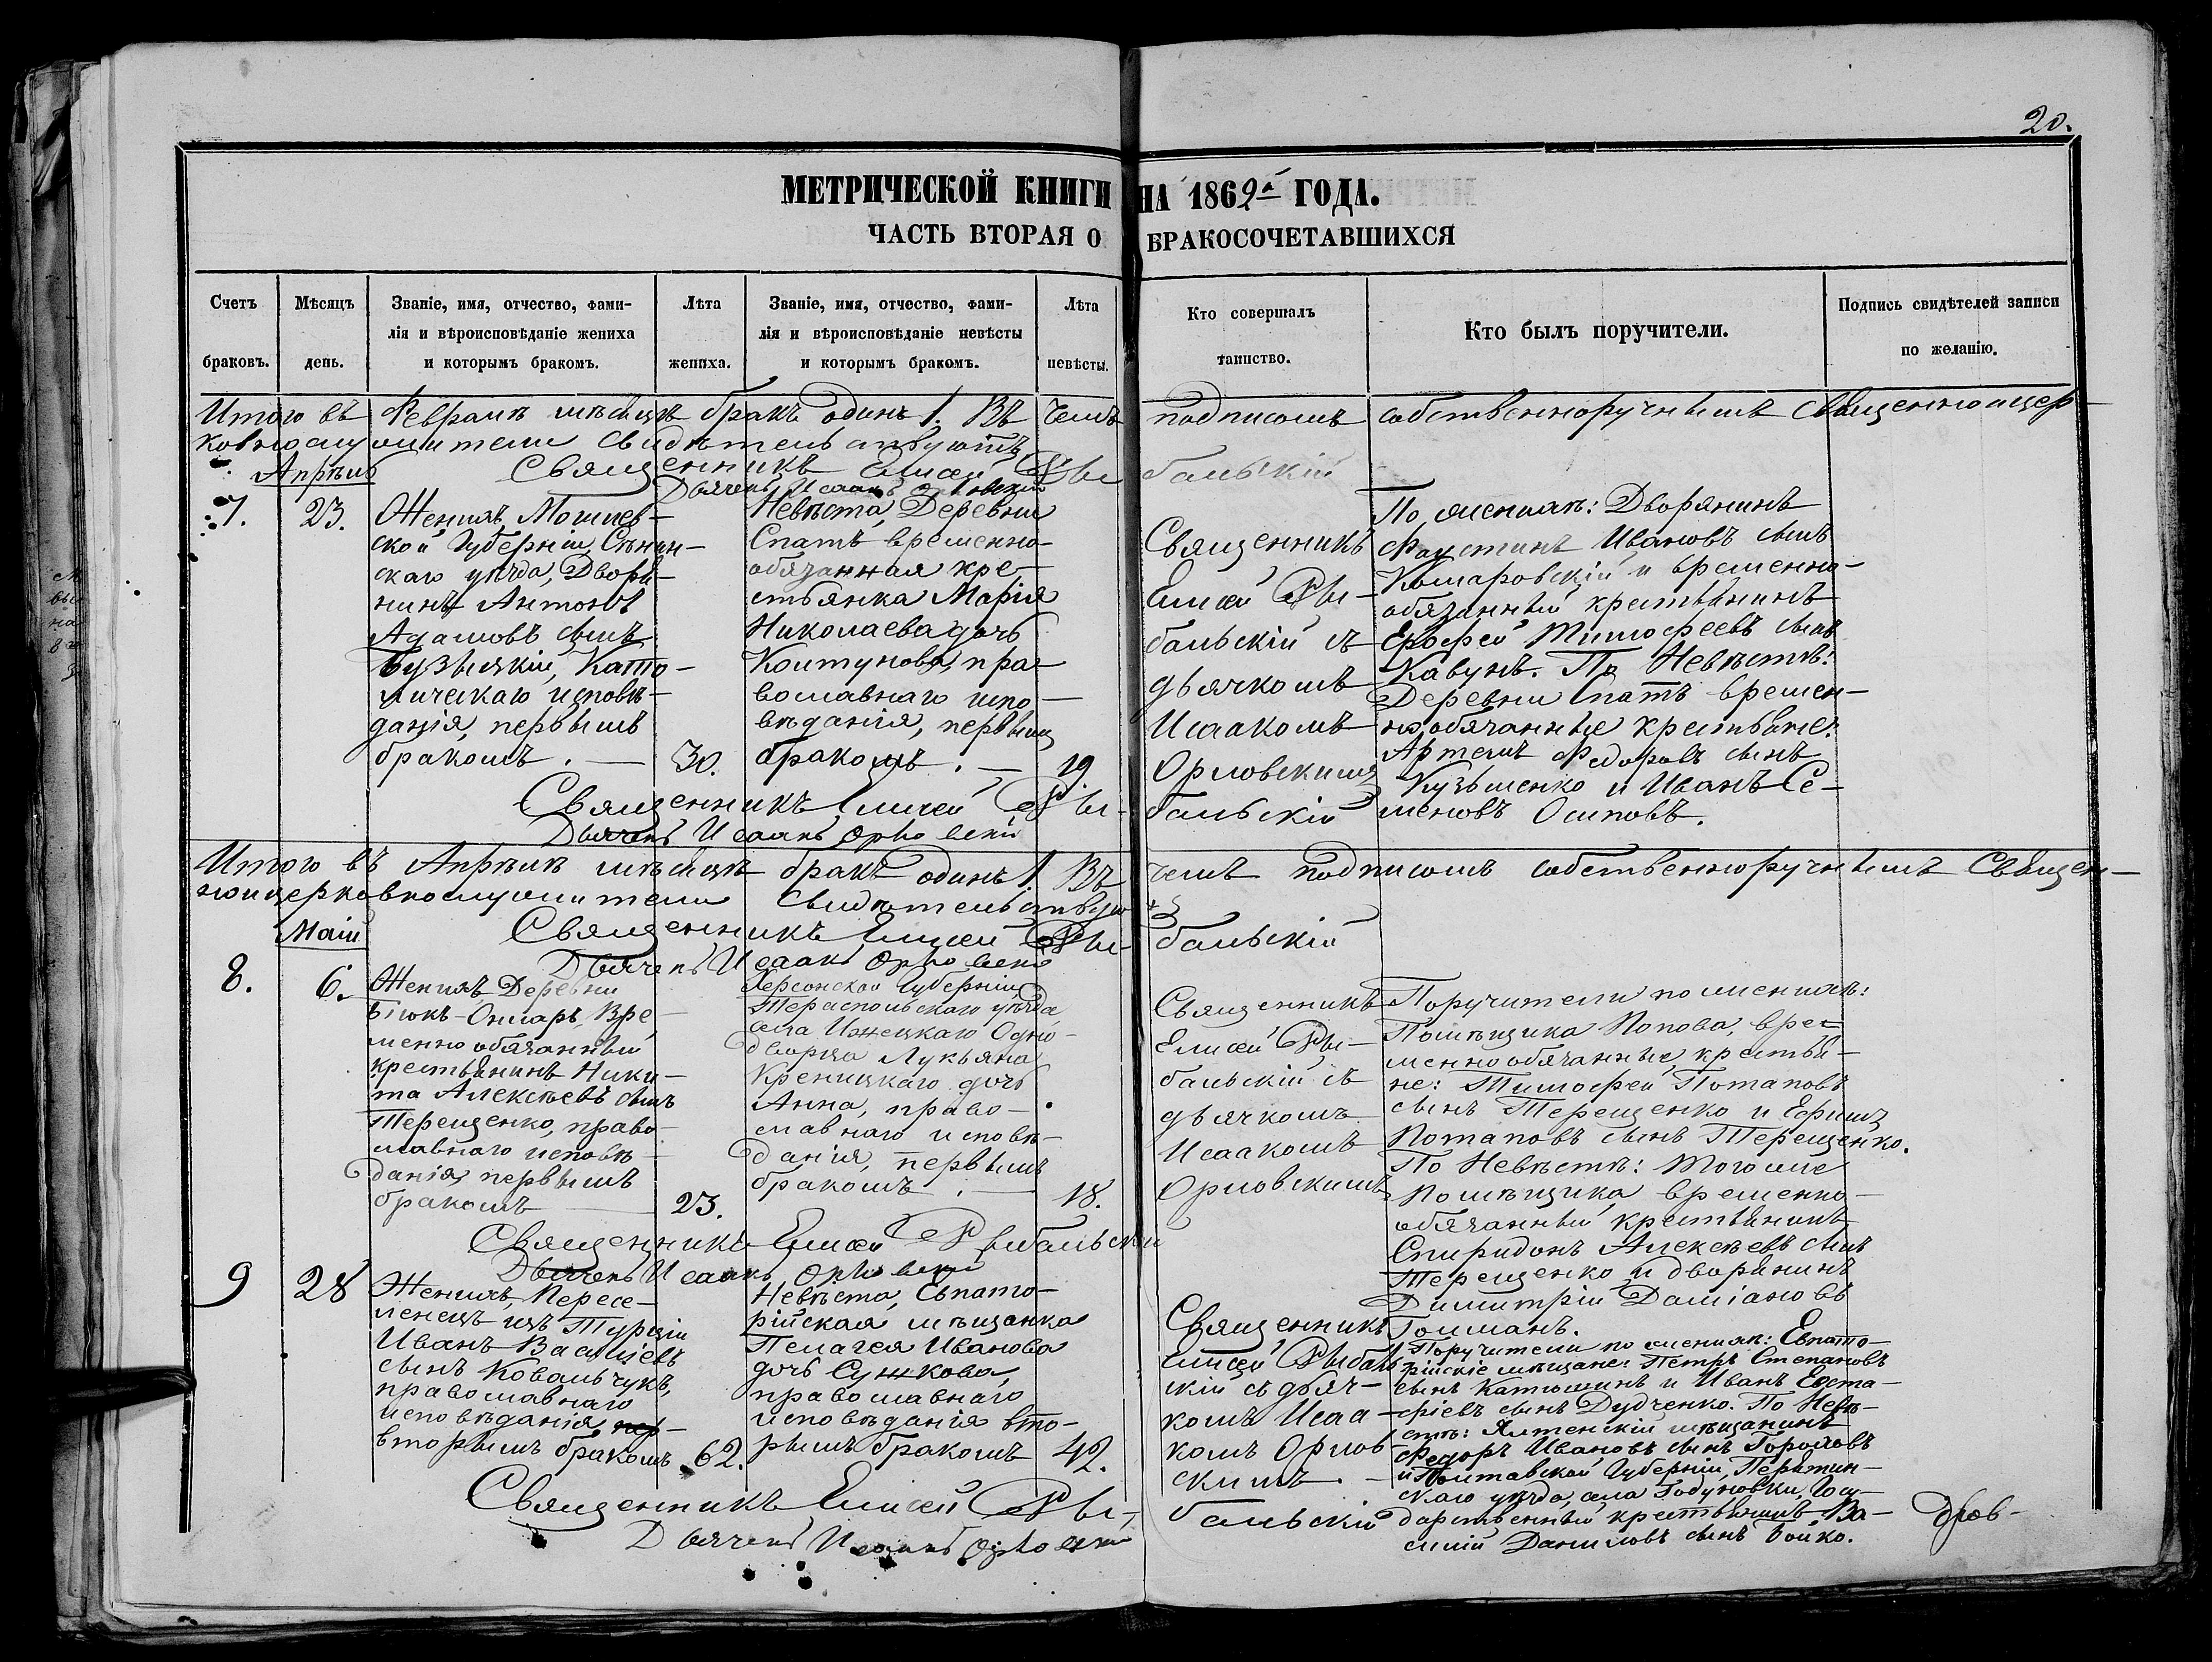 20.
МЕТРИЧЕСКОЙ КНИГИ НА 1862й ГОДА.
ЧАСТЬ ВТОРАЯ О БРАКОСОЧЕТАВШИХСЯ
Счетъ браковъ.
Мѣсяцъ день.
Званіе, имя, отчество, фами-
лія и вѣроисповѣданіе жениха
и которымъ бракомъ.
Лѣта жениха.
Званіе, имя, отчество, фами-
лія и вѣроисповѣданіе невѣсты
и которымъ бракомъ.
Лѣта невѣсты.
Кто совершалъ таинство.
Кто былъ поручители.
Подпись свидѣтелей записи
по желанію.
Итого въ Февралѣ мѣсяцѣ бракъ одинъ 1. Въ чемъ подписомъ собственноручнымъ Священноцер-
ковнослужители свидѣтельствуютъ
Священникъ Елисей Рыбальскій
Дьячекъ Исаакъ Орловскій
Апрѣль
7.
23.
Женихъ, Могилев-
ской Губерніи, Сѣнин-
скаго уѣзда, Дворя-
нинъ Антонъ
Адамовъ сынъ
Бузынкій, Като-
лическаго исповѣ-
данія, первымъ
бракомъ. —
30.
Невѣста, Деревни
Спатъ временно-
обязанная кре-
стьянка Марія
Николаева дочь
Колтунова, пра-
вославнаго испо-
вѣданія, первымъ
бракомъ. —
19.
Священникъ
Елисей Ры-
бальскій съ
дьячкомъ
Исаакомъ
Орловскимъ
По женихѣ: Дворянинъ
Фаустинъ Ивановъ сынъ
Комаровскій и временно-
обязанный крестьянинъ
Ерофей Тимофеевъ сынъ
Кавунъ. По Невѣстѣ:
Деревни Спатъ времен-
но обязанные крестьяне:
Артемъ Федоровъ сынъ
Кузьменко и Иванъ Се-
меновъ Осиповъ.
Священникъ Елисей Рыбальскій
Дьячекъ Исаакъ Орловскій
Итого въ Апрѣлѣ мѣсяцѣ бракъ одинъ 1. Въ чемъ подписомъ собственноручнымъ Священ-
ноцерковнослужители свидѣтельствую
Священникъ Елисей Рыбальскій
Дьячекъ Исаакъ Орловскій
Маій
8.
6.
Женихъ, Деревни
Біюкъ-Онларъ, Вре-
менно обязанный
крестьянинъ Ники-
та Алексѣевъ сынъ
Терещенко, право-
славнаго исповѣ-
данія, первымъ
бракомъ —
23.
Херсонской Губерніи
Тераспольскаго уѣзда
села Одно-
дворца Лукьяна
Креницкаго дочь
Анна, право-
славнаго исповѣ-
данія, первымъ
бракомъ. —
18.
Священникъ
Елисей Ры-
бальскій съ
дьячкомъ
Исаакомъ
Орловскимъ
Поручители по женихѣ:
Помѣщика Попова, вре-
менно обязанные, крестья-
не: Тимофей Потаповъ
сынъ Терещенко и Ефимъ
Потаповъ сынъ Терещенко.
По Невѣстѣ: Того же
Помѣщика, временно-
обязанный крестьянинъ
Спиридонъ Алексѣевъ сынъ
Терещенко и дворянинъ
Димитрій Даміановъ
Голманъ.
Священникъ Елисей Рыбальскій
Дьячекъ Исаакъ Орловскій
9
28
Женихъ, Пересе-
ленецъ изъ Турціи
Иванъ Васильевъ
сынъ Ковальчукъ,
православнаго
исповѣданія, пер-
вторымъ бракомъ
62.
Невѣста, Евпато-
рійская мѣщанка
Пелагея Иванова
дочь Сушкова,
православнаго
исповѣданія вто-
рымъ бракомъ
42.
Священникъ
Елисей Рыбаль-
скій съ дьяч-
комъ Исаа-
комъ Орлов-
скимъ. —
Поручители по женихѣ: Евпато-
рійскіе мѣщане: Петръ Степановъ
сынъ Катюшинъ и Иванъ Евста-
фіевъ сынъ Дудченко. По Невѣ-
стѣ: Ялтенскій мѣщанинъ
Федоръ Ивановъ сынъ
и Полтавской Губерніи, Пирятин-
скаго уѣзда, села Годуновки, Госу-
дарственный крестьянинъ Ва-
силій Даниловъ сынъ Бойко.
Священникъ Елисей Рыбальскій
Дьячекъ Исаакъ Орловскій